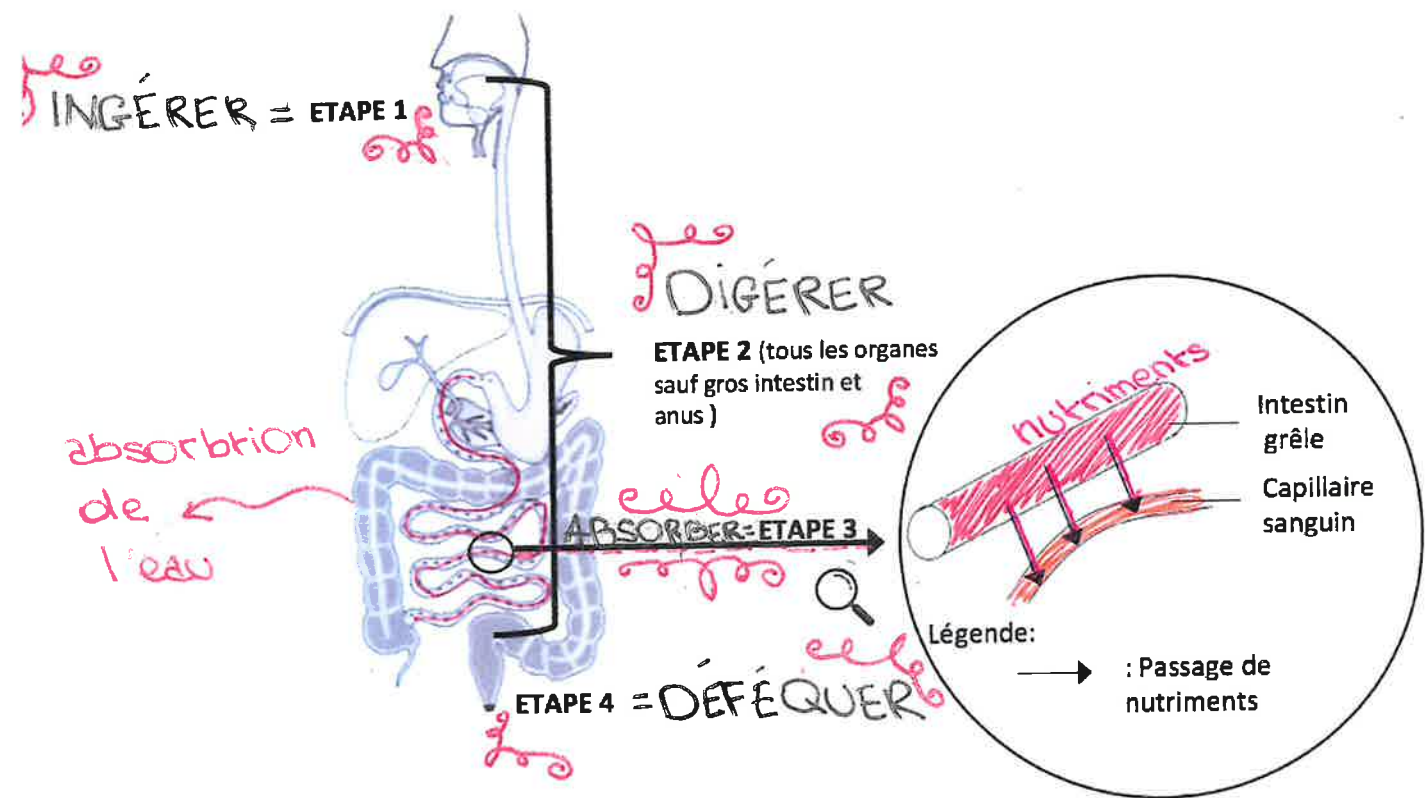 INGÉRER = ETAPE 1
DIGÉRER
ETAPE 2 (tous les organes
sauf gros intestin et
anus )
absorbtion
de
l'eau
ABSORBER=ETAPE 3
ETAPE 4 = DÉFÉQUER
nutriments
Intestin
grêle
Capillaire
sanguin
Légende:
: Passage de
nutriments